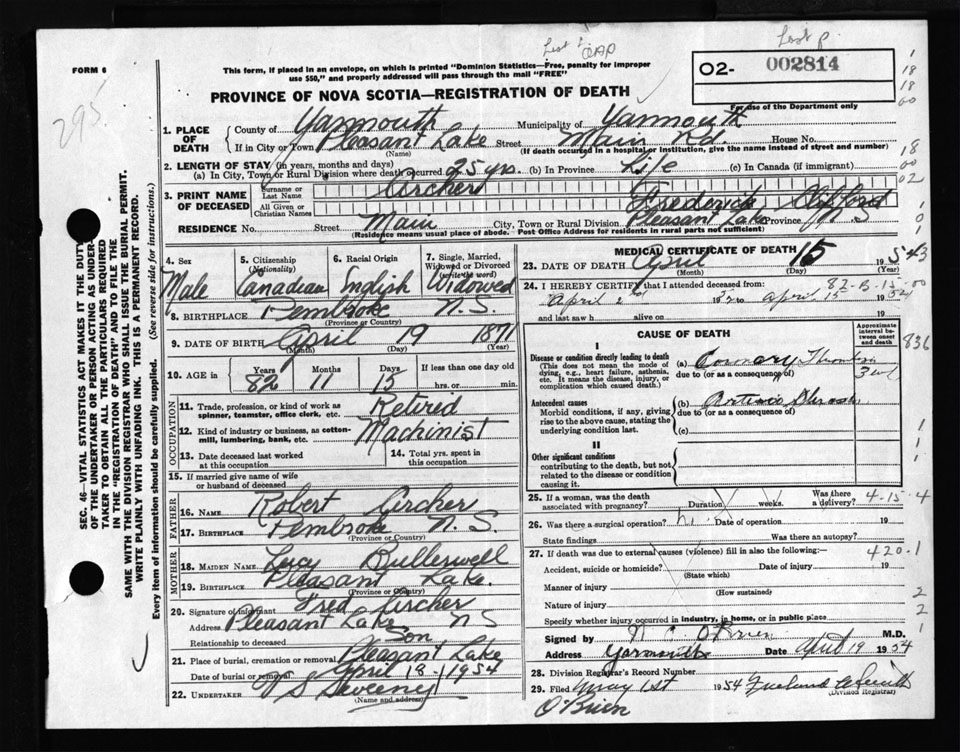 Lost p.
FORM 6
This form, if placed in an envelope, on which is printed "Dominion Statistics—Free, penalty for improper
use $50," and properly addressed will pass through the mail "FREE"
02- 002814
For use of the Department only
PROVINCE OF NOVA SCOTIA—REGISTRATION OF DEATH
295
1. PLACE OF DEATH
County of Yarmouth Municipality of Yarmouth
If in City or Town Pleasant Lake Street Main Rd. House No.
(Name) (If death occurred in a hospital or institution, give the name instead of street and number)
2. LENGTH OF STAY (in years, months and days)
(a) In City, Town or Rural Division where death occurred 25 yrs. (b) In Province Life (c) In Canada (if immigrant)
3. PRINT NAME OF DECEASED
Surname or Last Name Archer
All Given or Christian Names Frederick Clifford
RESIDENCE No. Street Main City, Town or Rural Division Pleasant Lake Province N.S.
(Residence means usual place of abode. Post Office Address for residents in rural parts not sufficient)
4. Sex Male
5. Citizenship (Nationality) Canadian
6. Racial Origin English
7. Single, Married, Widowed or Divorced (write the word) Widowed
8. BIRTHPLACE Pembroke N.S.
(Province or Country)
9. DATE OF BIRTH April 19 1871
(Month) (Day) (Year)
10. AGE in Years 82 Months 11 Days 15 If less than one day old
hrs. or min.
OCCUPATION
11. Trade, profession, or kind of work as spinner, teamster, office clerk, etc. Retired
12. Kind of industry or business, as cotton-mill, lumbering, bank, etc. Machinist
13. Date deceased last worked at this occupation
14. Total yrs. spent in this occupation
15. If married give name of wife or husband of deceased
FATHER
16. Name Robert Archer
17. BIRTHPLACE Pembroke N.S.
(Province or Country)
MOTHER
18. MAIDEN NAME Lucy Bullerwell
19. BIRTHPLACE Pleasant Lake.
(Province or Country)
20. Signature of informant Fred Archer
Address Pleasant Lake N S
Relationship to deceased Son
21. Place of burial, cremation or removal Pleasant Lake
Date of burial or removal April 18 1954
22. UNDERTAKER V S Sweeney
(Name and address)
MEDICAL CERTIFICATE OF DEATH
23. DATE OF DEATH April 15 195
(Month) (Day) (Year)
24. I HEREBY CERTIFY that I attended deceased from:
April 2 to April 15 1954
and last saw h alive on
CAUSE OF DEATH
Approximate interval between onset and death
836
I
Disease or condition directly leading to death
(This does not mean the mode of dying, e.g., heart failure, asthenia, etc. It means the disease, injury, or complication which caused death.)
(a) Coronary
due to (or as a consequence of)
Antecedent causes
Morbid conditions, if any, giving rise to the above cause, stating the underlying condition last.
(b)
due to (or as a consequence of)
(c)
II
Other significant conditions
contributing to the death, but not related to the disease or condition causing it.
25. If a woman, was the death associated with pregnancy? Duration weeks. Was there a delivery?
4-15-4
26. Was there a surgical operation? Date of operation 19
State findings Was there an autopsy?
27. If death was due to external causes (violence) fill in also the following:
420.1
Accident, suicide or homicide? Date of injury 19
(State which)
Manner of injury
(How sustained)
Nature of injury
Specify whether injury occurred in industry, in home, or in public place
Signed by O'Brien M.D.
Address Yarmouth Date April 19 1954
28. Division Registrar's Record Number
29. Filed May 1st 1954
(Division Registrar)
O'Brien
SEC. 46—VITAL STATISTICS ACT MAKES IT THE DUTY
OF THE UNDERTAKER OR PERSON ACTING AS UNDER-
TAKER TO OBTAIN ALL THE PARTICULARS REQUIRED
IN THE "REGISTRATION OF DEATH" AND TO FILE THE
SAME WITH THE DIVISION REGISTRAR WHO SHALL ISSUE THE BURIAL PERMIT.
WRITE PLAINLY WITH UNFADING INK. THIS IS A PERMANENT RECORD.
Every item of information should be carefully supplied. (See reverse side for instructions.)